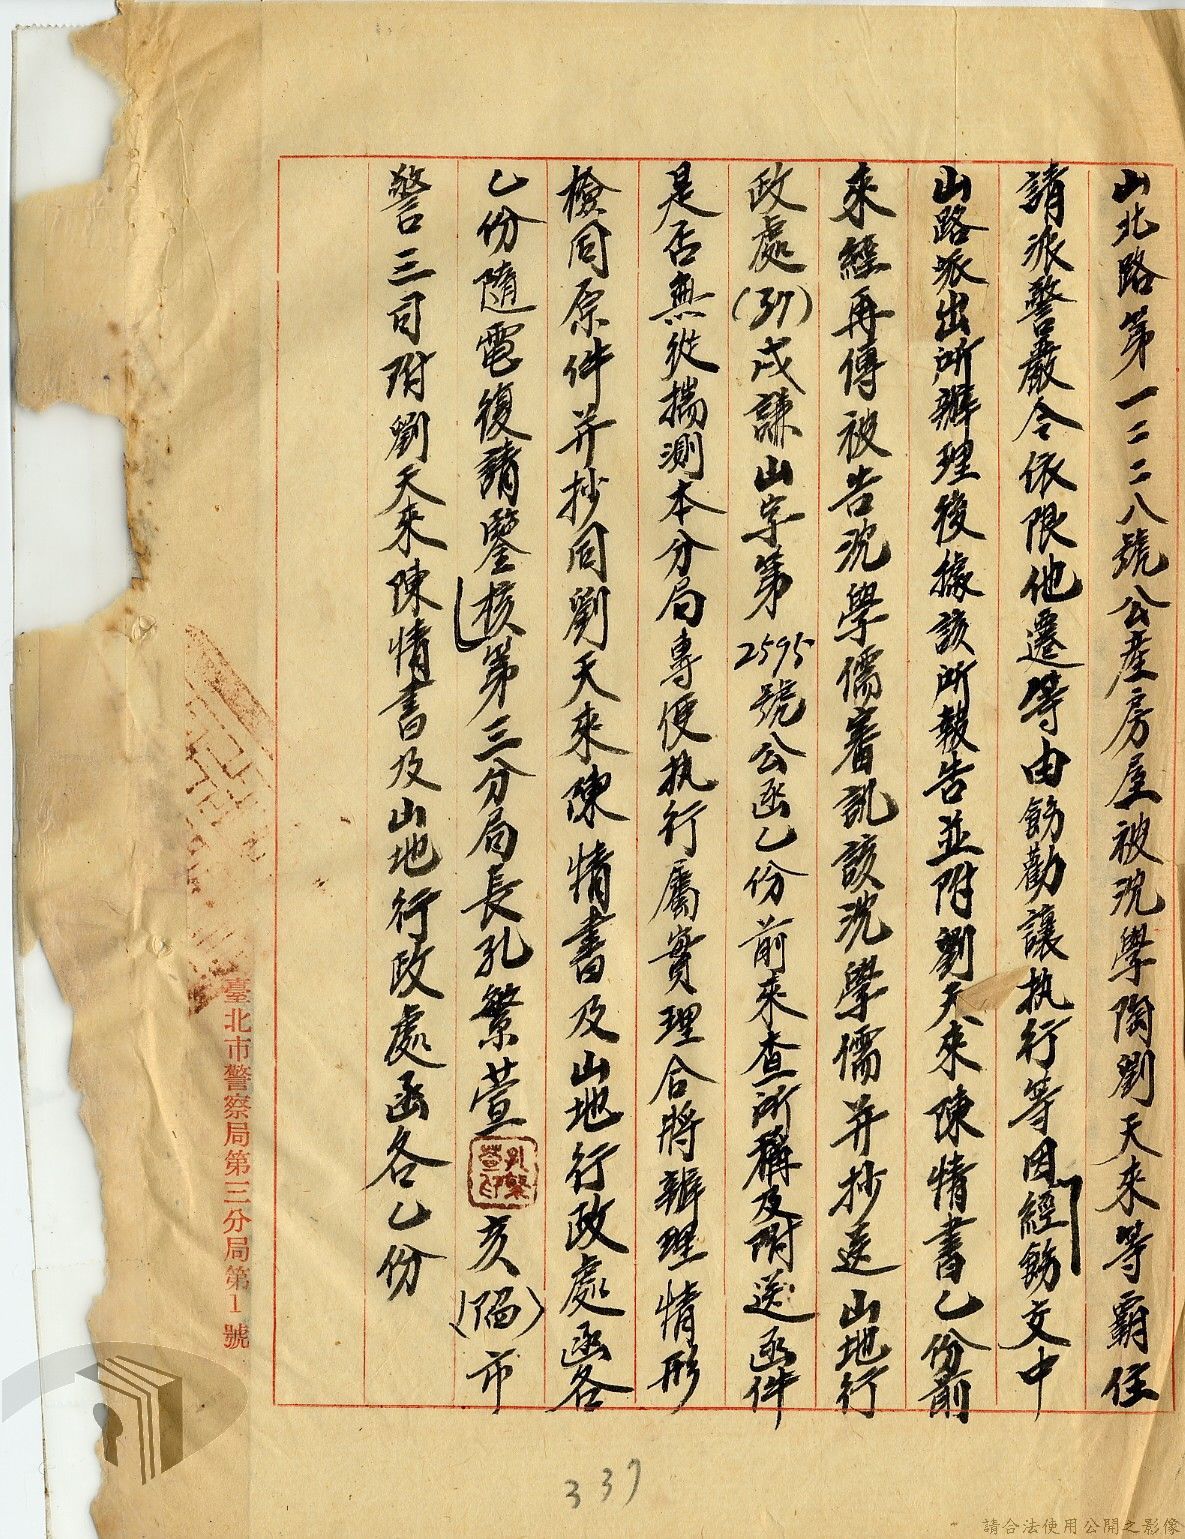 山北路第一二二八號公產房屋被沈學陶劉天來等霸住
請派警嚴令依限他遷等由飭勸讓执行等因經飭交中
山路派出所辦理後據該所報告並附劉天來陳情書乙份前
來經再傳被告沈學儒審訊該沈學儒并抄送山地行
政處(37)戌謙山字第2595號公函乙份前來查所稱及附送函件
是否無從揣測本分局專便执行屬實理合將辦理情形
檢同原件并抄同劉天來陳情書及山地行政處函各
乙份隨電復請鑒核第三分局長孔繁萱亥(陷)市
警三司附劉天來陳情書及山地行政處函各乙份
臺北市警察局第三分局第1號
337
請合法使用公開之影像